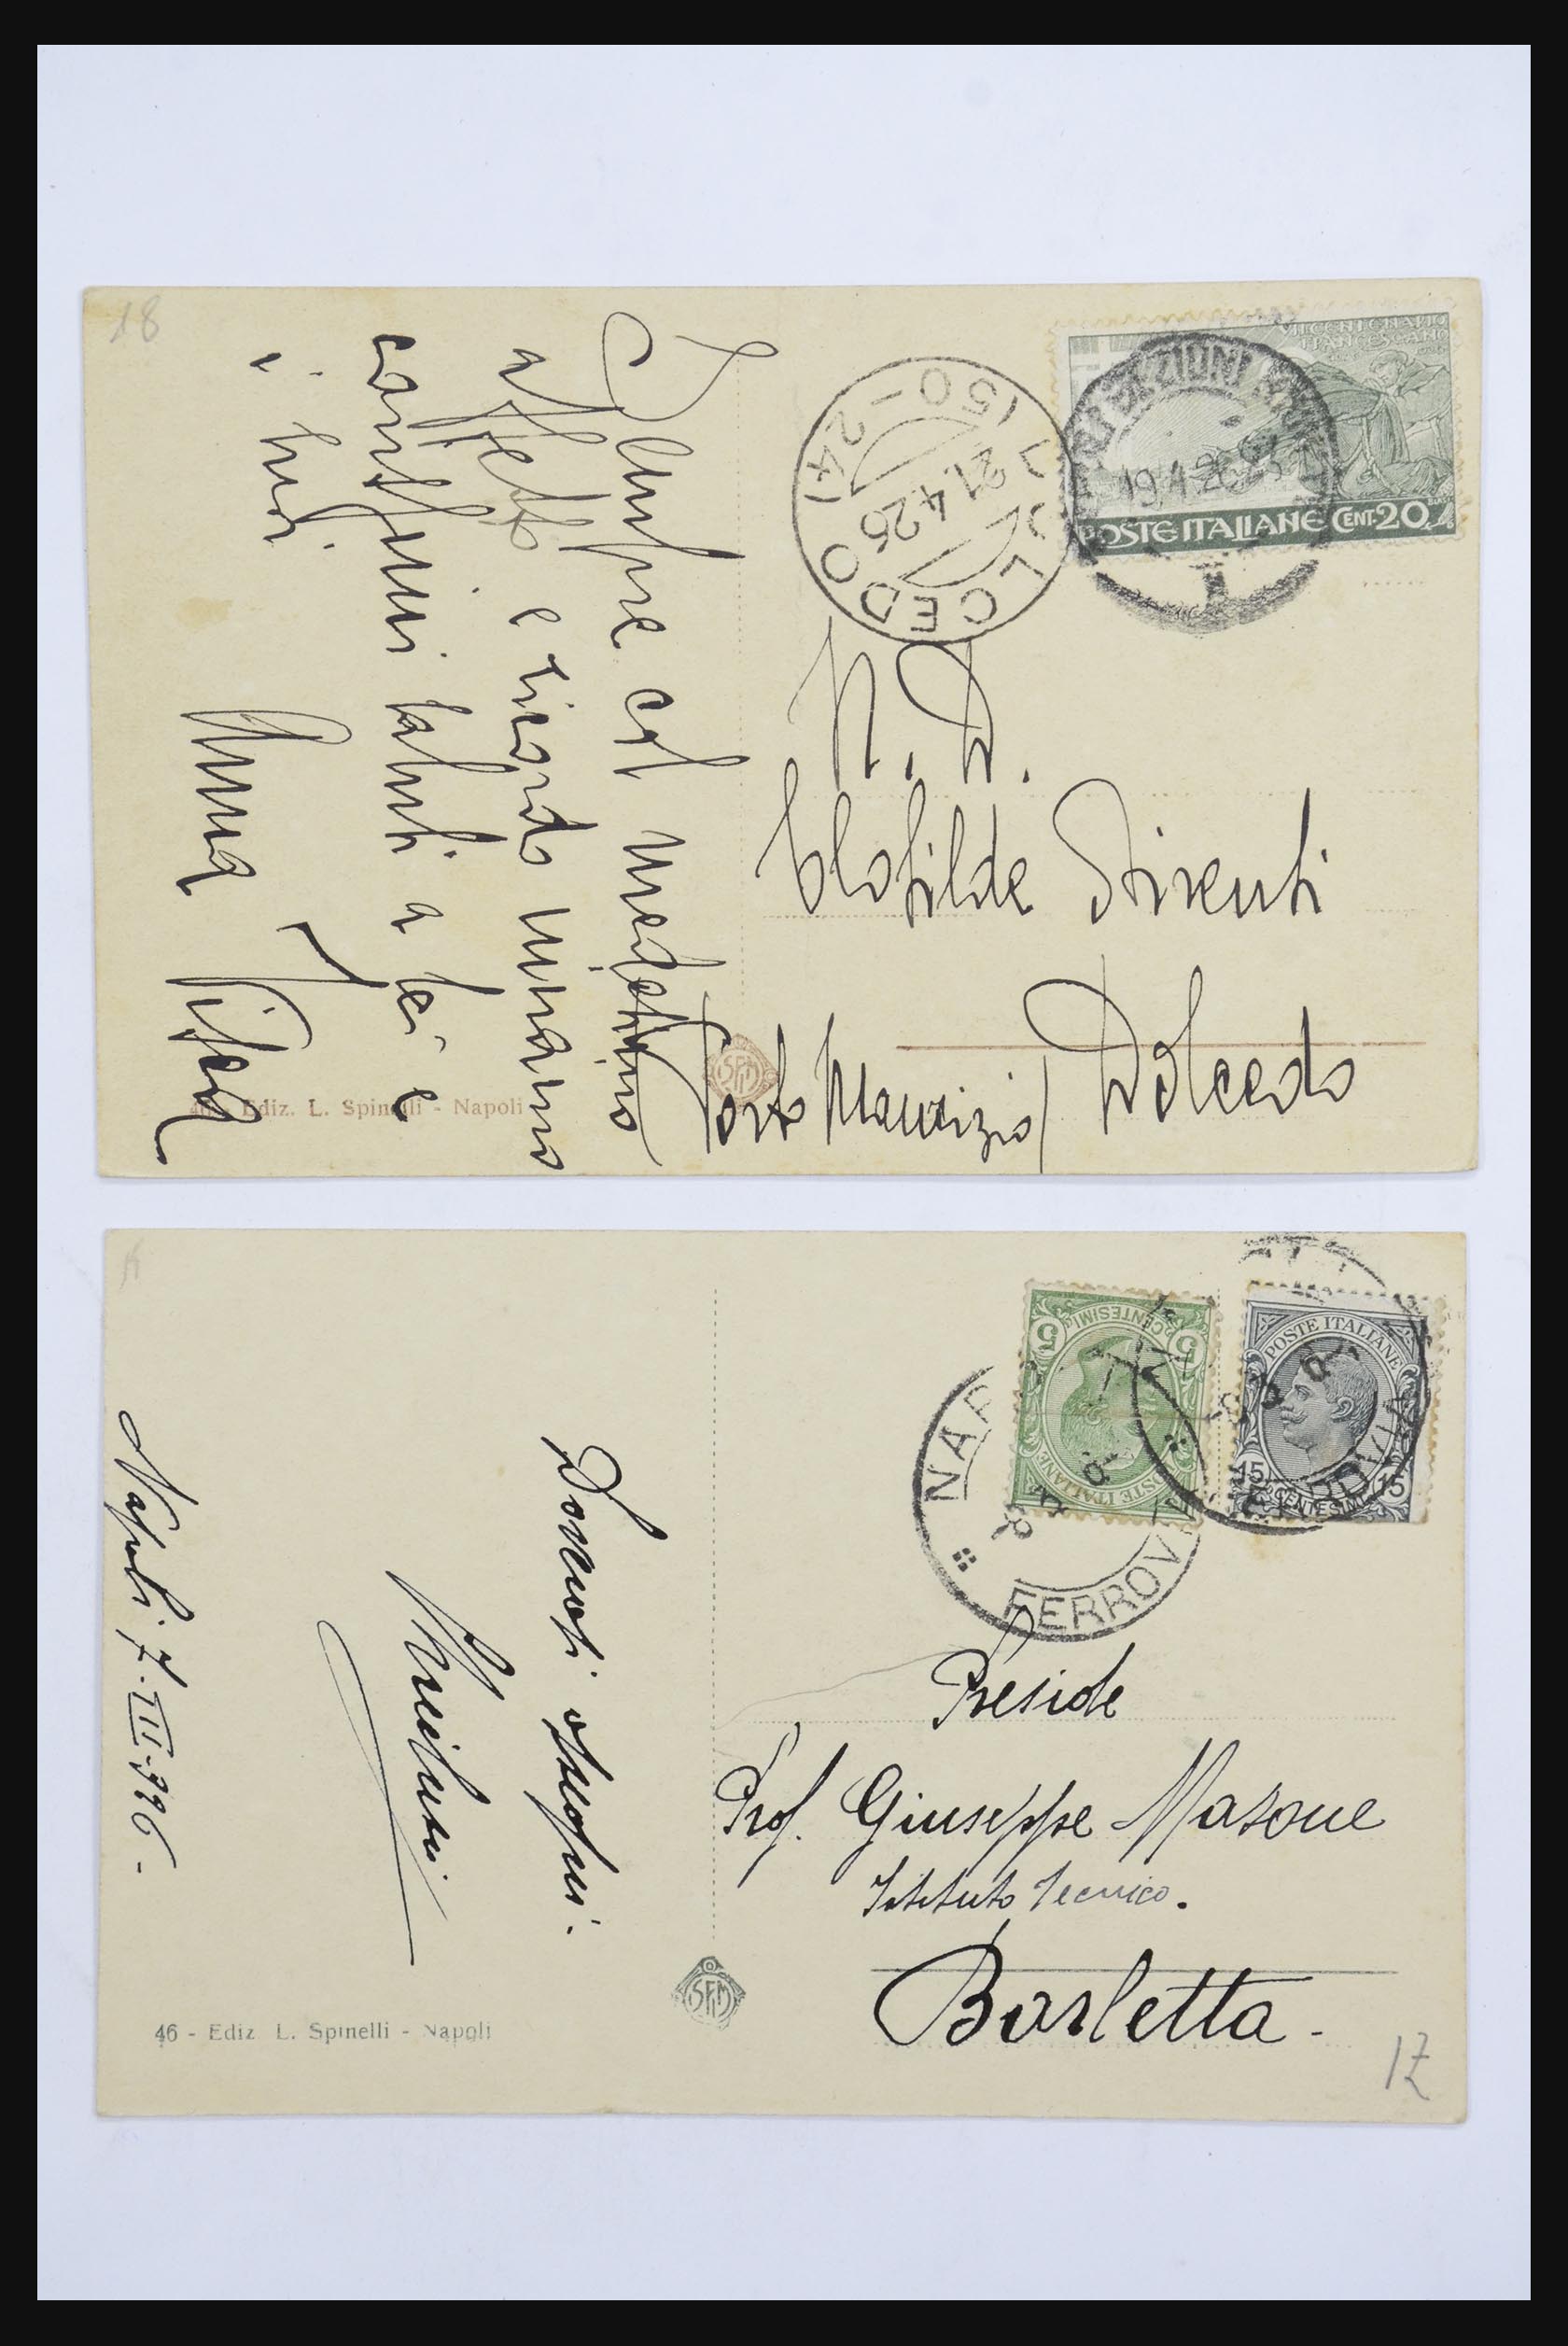 18
Sempre col medesimo
affetto e ricordo uniamo
carissimi saluti a lei e
i suoi
Anna
VII CENTENARIO
FRANCESCANO
POSTE ITALIANE CENT. 20
19.4.26
DOLCEDO
21.4.26
(150-24)
N. D.
Clotilde Sirenti
Dolcedo
Porto Maurizio
SFM
Ediz. L. Spinelli - Napoli
POSTE ITALIANE
5 CENTESIMI 5
POSTE ITALIANE
15 CENTESIMI 15
NAP
FERROVIA
Napoli, 7-III-926.
Devoti ossequi.
Preside
Prof. Giuseppe Masone
Istituto Tecnico.
Barletta.
SFM
46 - Ediz. L. Spinelli - Napoli
17